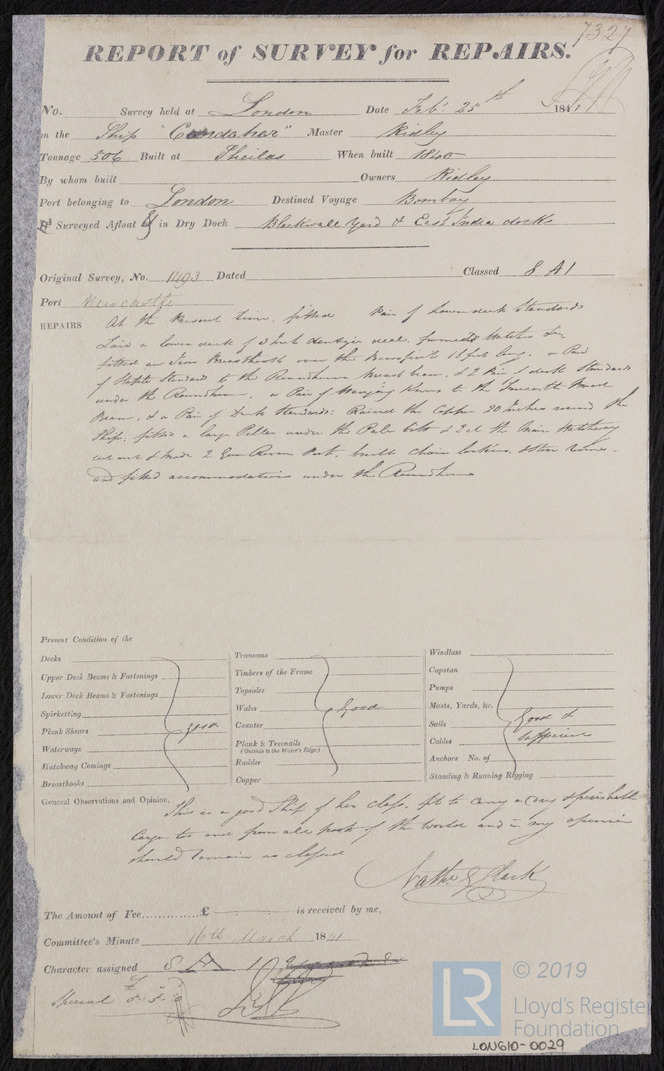 7327
REPORT of SURVEY for REPAIRS.
No. Survey held at London Date Feb: 25th 1841
on the Ship "Candahar" Master Ridley
Tonnage 506 Built at Shields When built 1840
By whom built Owners Ridley
Port belonging to London Destined Voyage Bombay
Surveyed Afloat & in Dry Dock Blackwall Yard & East India docks
Original Survey, No. 1493 Dated Classed 8 A1
Port Newcastle
REPAIRS At the Present time, fitted Pair of Lower deck Standards
Laid a lower deck of which dantzic deal, Hatches &c
fitted an Iron Breasthook over the Bowsprit 18 feet long, a Pair
of Standards to the Roundhouse beam, & 2 Pair of deck Standards
under the Roundhouse, a Pair of Hanging Knees to the
Beam, & a Pair of Deck Standards: Raised the Copper 20 Inches round the
Ship, fitted a large Pillar under the Palm bitts & 2 at the Main Hatchway
cut out & made 2 Gun Room Ports, built chain lockers, store rooms,
and fitted accommodations under the Roundhouse
Present Condition of the
Decks
Upper Deck Beams & Fastenings
Lower Deck Beams & Fastenings
Spirketting
Plank Shears good
Waterways
Hatchway Comings
Breasthooks
Transoms
Timbers of the Frame
Topsides
Wales Good
Counter
Plank & Treenails
(Outside to the Water's Edge)
Rudder
Copper
Windlass
Capstan
Pumps
Masts, Yards, &c.
Sails Good &
Cables sufficient
Anchors No. of
Standing & Running Rigging
General Observations and Opinion, This is a good Ship of her class, fit to carry a dry & perishable
Cargo to and from all parts of the World and in my opinion
should remain as classed
Nathl G Clark
The Amount of Fee............£ is received by me,
Committee's Minute 16th March 1841
Character assigned 8 A 1
Special
© 2019
LR
Lloyd's Register
Foundation
LON610-0029